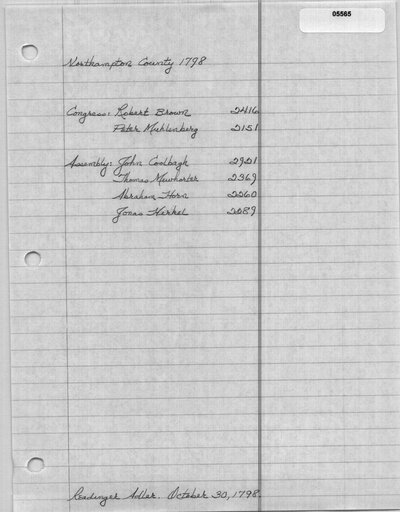 05565
Northampton County 1798
Congress: Robert Brown 2416
Peter Muhlenberg 2151
Assembly: John Coolbagh 2921
Thomas Mewhorter 2369
Abraham Horn 2260
Jonas Herkel 2289
Readinger Adler. October 30, 1798.